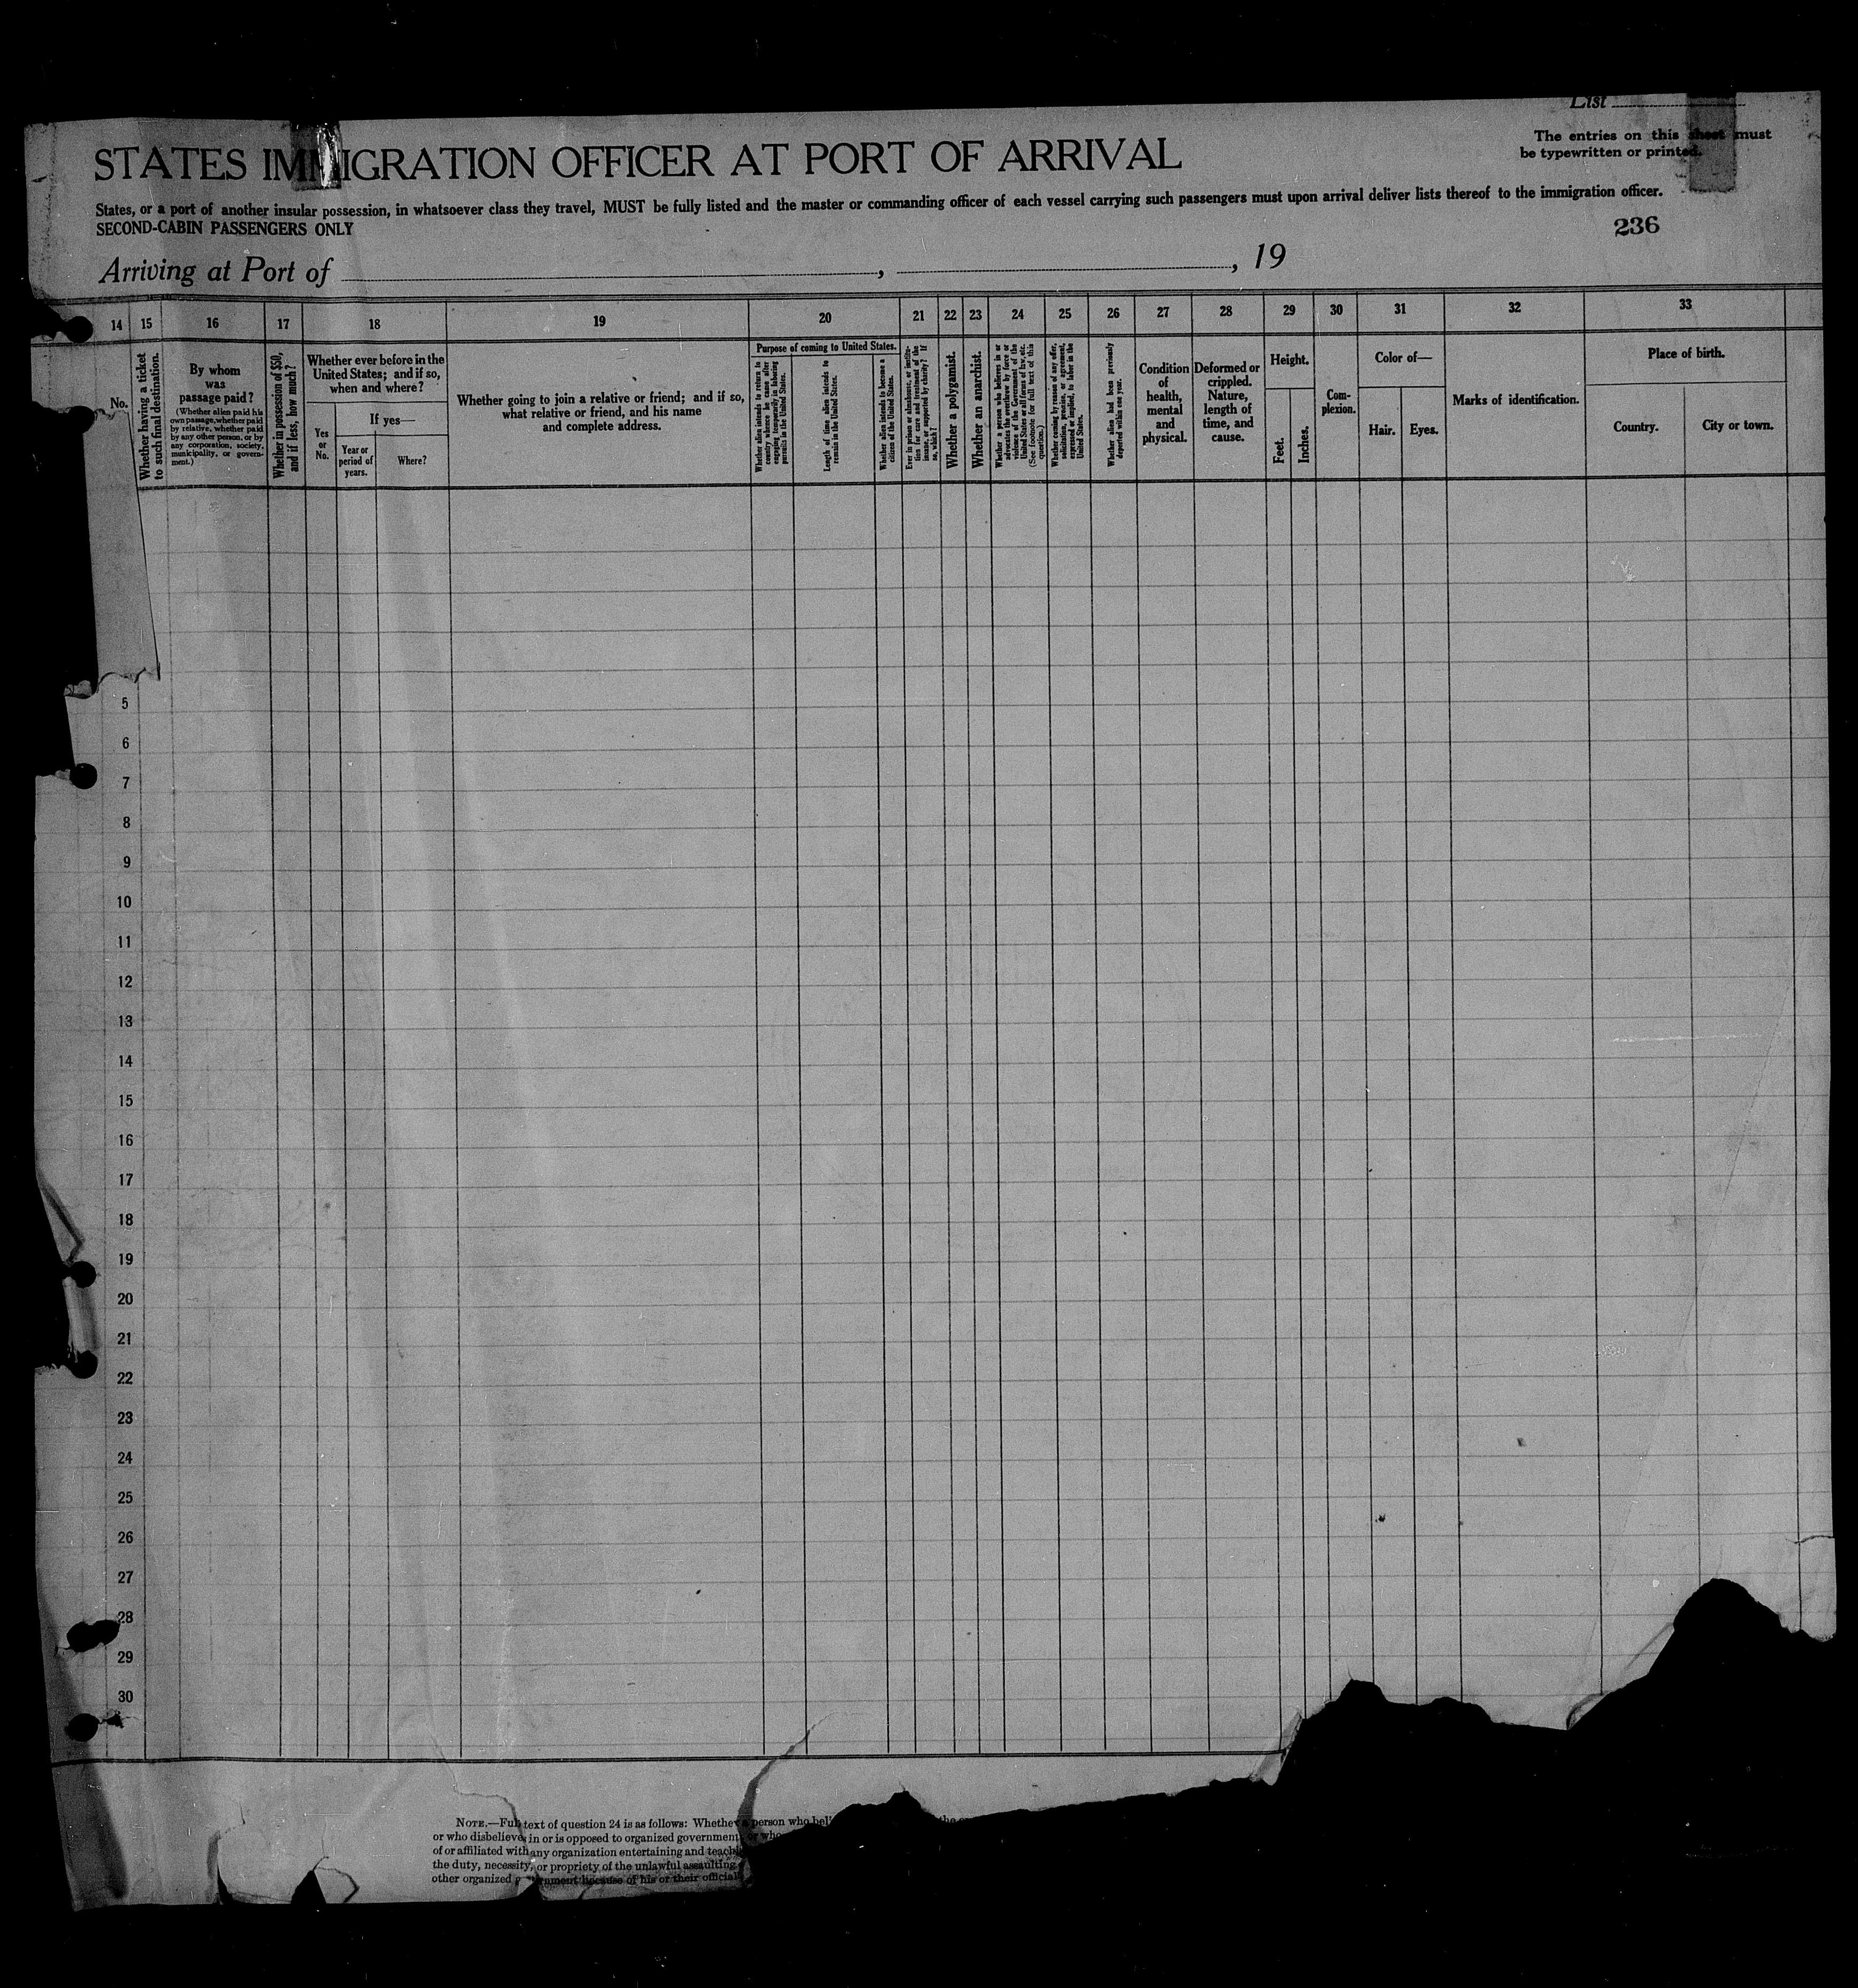 List
The entries on this sheet must
be typewritten or printed.
STATES IMMIGRATION OFFICER AT PORT OF ARRIVAL
States, or a port of another insular possession, in whatsoever class they travel, MUST be fully listed and the master or commanding officer of each vessel carrying such passengers must upon arrival deliver lists thereof to the immigration officer.
SECOND-CABIN PASSENGERS ONLY
236
Arriving at Port of , , 19
14 15 16 17 18 19 20 21 22 23 24 25 26 27 28 29 30 31 32 33
No.
Whether having a ticket
to such final destination.
By whom
was
passage paid?
(Whether alien paid his
own passage, whether paid
by relative, whether paid
by any other person, or by
any corporation, society,
municipality, or govern-
ment.)
Whether in possession of $50,
and if less, how much?
Whether ever before in the
United States; and if so,
when and where?
Yes
or
No.
If yes—
Year or
period of
years.
Where?
Whether going to join a relative or friend; and if so,
what relative or friend, and his name
and complete address.
Purpose of coming to United States.
Whether alien intends to return to
country whence he came after
engaging temporarily in laboring
pursuits in the United States.
Length of time alien intends to
remain in the United States.
Whether alien intends to become a
citizen of the United States.
Ever in prison or almshouse, or institu-
tion for care and treatment of the
insane, or supported by charity? If
so, which?
Whether a polygamist.
Whether an anarchist.
Whether a person who believes in or
advocates the overthrow by force or
violence of the Government of the
United States or all forms of law, etc.
(See footnote for full text of this
question.)
Whether coming by reason of any offer,
solicitation, promise, or agreement,
expressed or implied, to labor in the
United States.
Whether alien had been previously
deported within one year.
Condition
of
health,
mental
and
physical.
Deformed or
crippled.
Nature,
length of
time, and
cause.
Height.
Feet.
Inches.
Com-
plexion.
Color of—
Hair.
Eyes.
Marks of identification.
Place of birth.
Country.
City or town.
5
6
7
8
9
10
11
12
13
14
15
16
17
18
19
20
21
22
23
24
25
26
27
28
29
30
NOTE.—Full text of question 24 is as follows: Whether a person who beli the
or who disbelieves in or is opposed to organized government, or who
of or affiliated with any organization entertaining and teach
the duty, necessity, or propriety of the unlawful assaulting
other organized government because of his or their official